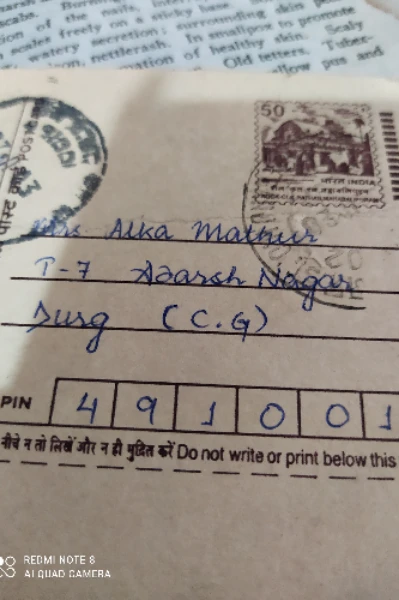 scabs.
of the nails,
surrounding skin
scales freely on a sticky base.
watery secretion; In smallpox to promote
nettlerash.
of healthy skin. Scaly
Old tetters. Tuber-
yellow pus and
पोस्ट कार्ड POST
50
भारत INDIA
Mrs Alka Mathur
T-7 Adarsh Nagar
Durg (C.G)
PIN 4 9 1 0 0 1
नीचे न तो लिखें और न ही मुद्रित करें Do not write or print below this
REDMI NOTE 8
AI QUAD CAMERA